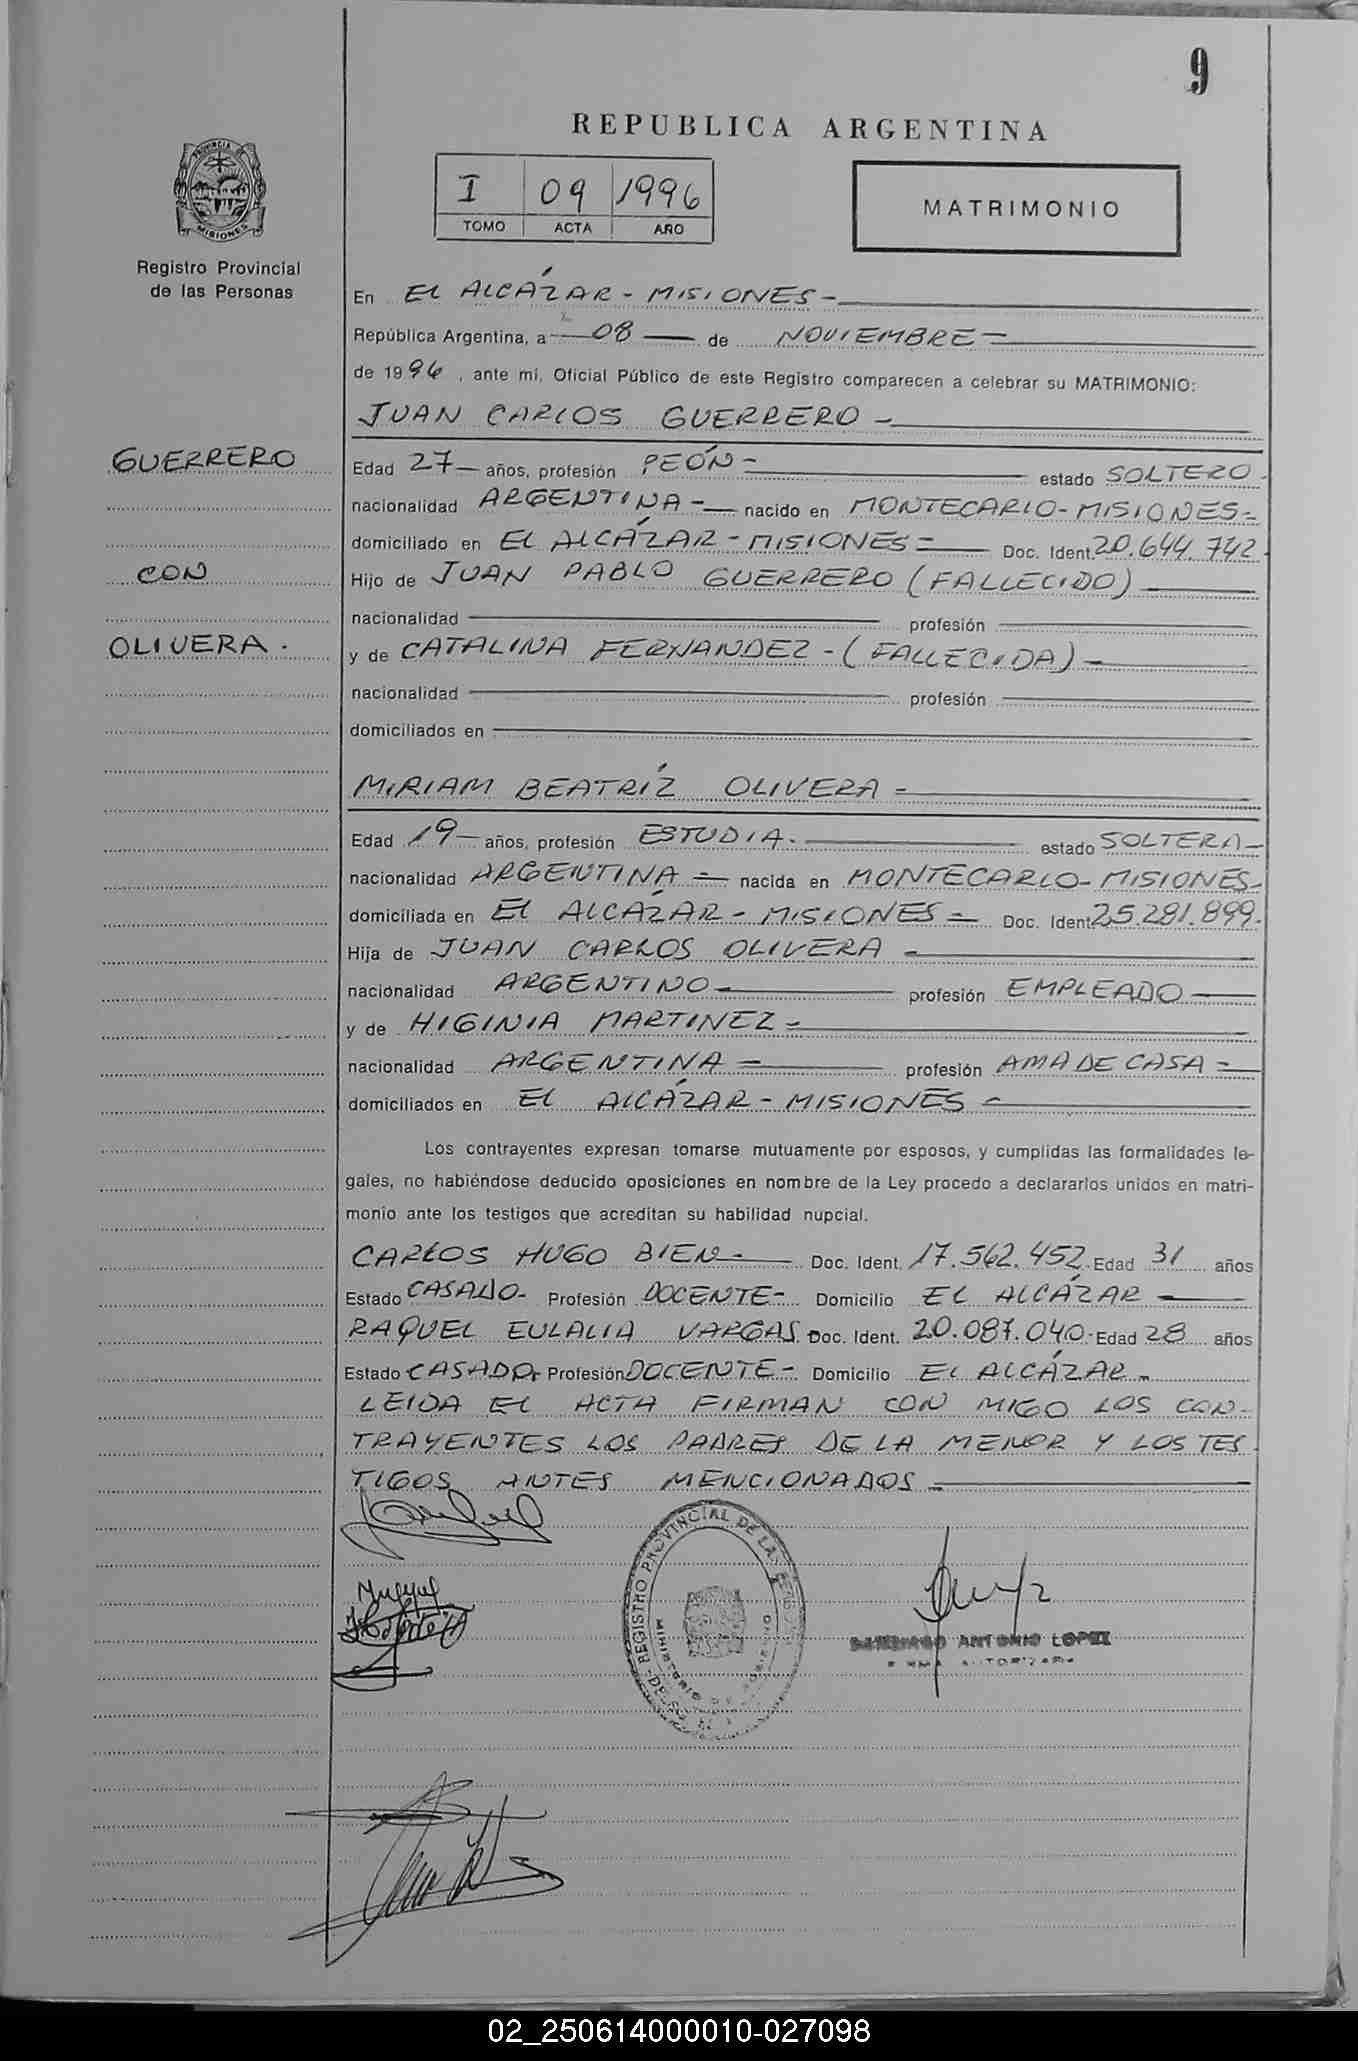 9
REPUBLICA ARGENTINA
I 09 1996
TOMO ACTA AÑO
MATRIMONIO
PROVINCIA DE
MISIONES
Registro Provincial
de las Personas
En EL ALCÁZAR - MISIONES -
República Argentina, a 08 de NOVIEMBRE -
de 1996, ante mí, Oficial Público de este Registro comparecen a celebrar su MATRIMONIO:
JUAN CARLOS GUERRERO -
GUERRERO
CON
OLIVERA.
Edad 27 - años, profesión PEÓN - estado SOLTERO -
nacionalidad ARGENTINA - nacido en MONTECARLO - MISIONES -
domiciliado en EL ALCÁZAR - MISIONES - Doc. Ident. 20.644.742.
Hijo de JUAN PABLO GUERRERO (FALLECIDO)
nacionalidad profesión
y de CATALINA FERNANDEZ - (FALLECIDA) -
nacionalidad profesión
domiciliados en
MIRIAM BEATRÍZ OLIVERA -
Edad 19 - años, profesión ESTUDIA. estado SOLTERA -
nacionalidad ARGENTINA - nacida en MONTECARLO - MISIONES -
domiciliada en EL ALCÁZAR - MISIONES - Doc. Ident. 25.281.899.
Hija de JUAN CARLOS OLIVERA -
nacionalidad ARGENTINO - profesión EMPLEADO -
y de HIGINIA MARTINEZ -
nacionalidad ARGENTINA - profesión AMA DE CASA -
domiciliados en EL ALCÁZAR - MISIONES -
Los contrayentes expresan tomarse mutuamente por esposos, y cumplidas las formalidades le-
gales, no habiéndose deducido oposiciones en nombre de la Ley procedo a declararlos unidos en matri-
monio ante los testigos que acreditan su habilidad nupcial.
CARLOS HUGO BIEN - Doc. Ident. 17.562.452. Edad 31 años
Estado CASADO - Profesión DOCENTE - Domicilio EL ALCÁZAR
RAQUEL EULALIA VARGAS Doc. Ident. 20.087.040. Edad 28 años
Estado CASADO. Profesión DOCENTE - Domicilio EL ALCÁZAR -
LEIDA EL ACTA FIRMAN CON MIGO LOS CON-
TRAYENTES LOS PADRES DE LA MENOR Y LOS TES
TIGOS ANTES MENCIONADOS -
REGISTRO PROVINCIAL DE LAS
MINISTERIO DE GOBIERNO
ANTONIO LOPEZ
FIRMA AUTORIZADA
02_250614000010-027098